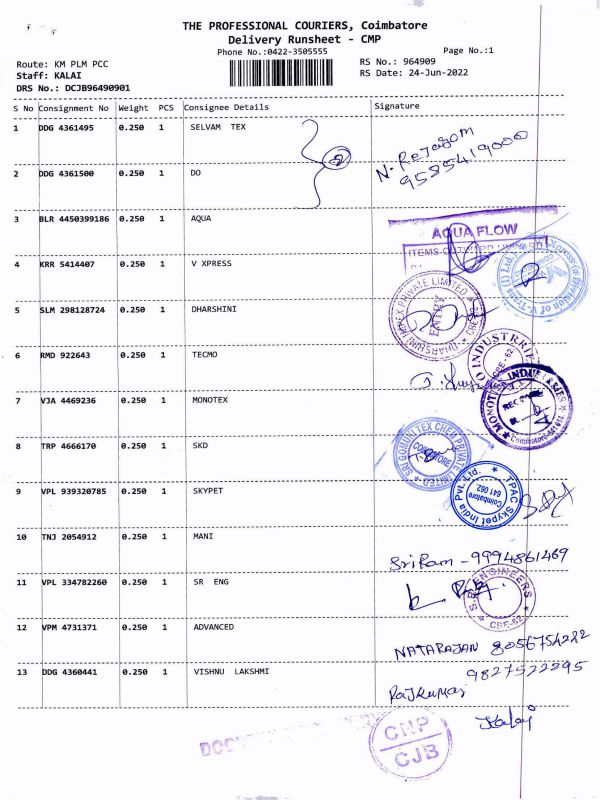 THE PROFESSIONAL COURIERS, Coimbatore
Delivery Runsheet - CMP
Phone No.:0422-3505555
Page No.:1
Route: KM PLM PCC
Staff: KALAI
DRS No.: DCJB96490901
RS No.: 964909
RS Date: 24-Jun-2022
S No Consignment No Weight PCS Consignee Details Signature
1 DDG 4361495 0.250 1 SELVAM TEX
N. Rejagom
9585419000
2 DDG 4361500 0.250 1 DO
3 BLR 4450399186 0.250 1 AQUA
AQUA FLOW
4 KRR 5414407 0.250 1 V XPRESS
5 SLM 298128724 0.250 1 DHARSHINI
ENTRY
6 RMD 922643 0.250 1 TECMO
7 VJA 4469236 0.250 1 MONOTEX
MONOTEX INDUSTRIES
Coimbatore
8 TRP 4666170 0.250 1 SKD
SRI GOMUNI TEX CHEM PRIVATE LIMITED
COIMBATORE
9 VPL 939320785 0.250 1 SKYPET
TPAC Skypet India Pvt. Ltd.
Coimbatore
641 062
10 TNJ 2054912 0.250 1 MANI
SriRam - 9994861469
11 VPL 334782260 0.250 1 SR ENG
S.R. ENGINEERS
CBE-62
12 VPM 4731371 0.250 1 ADVANCED
NATARAJAN 8056754222
13 DDG 4360441 0.250 1 VISHNU LAKSHMI
9827522895
Rajkumar
Kalai
CMP
CJB